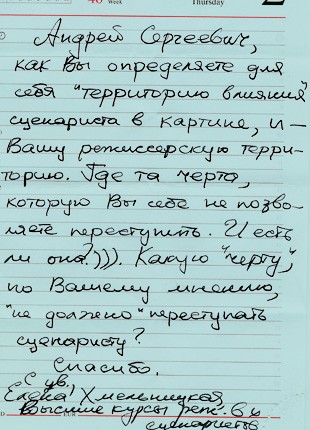 40 Week Thursday 2
Андрей Сергеевич,
как Вы определяете для
себя "территорию влияния"
сценариста в картине, и –
Вашу режиссерскую терри-
торию. Где та черта,
которую Вы себе не позво-
ляете переступить. И есть
ли она?))). Какую "черту",
по Вашему мнению,
"не должно" переступать
сценаристу?
Спасибо.
С ув,
Елена Хмельницкая,
Высшие курсы реж. и
сценаристов